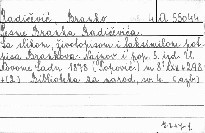 Radičević Branko 4 U 55044
Pesme Branka Radičevića.
Sa slikom, životopisom i faksimilom pot-
pisa Brankova. Najnov. i pop. 5. izd. U
Novome Sadu 1898 (Popović) m 8° str. 298
(2) Biblioteka za narod, sv. 4 (ajb)